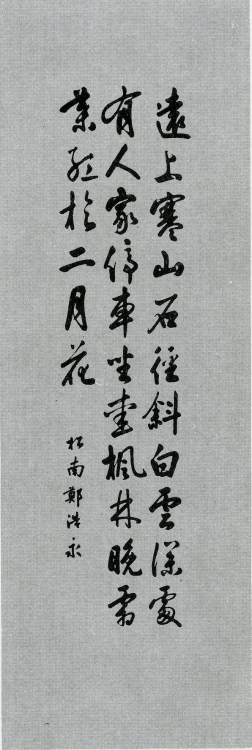 遠上寒山石徑斜白雲深處
有人家停車坐愛楓林晚霜
葉紅於二月花
松南鄭浩永